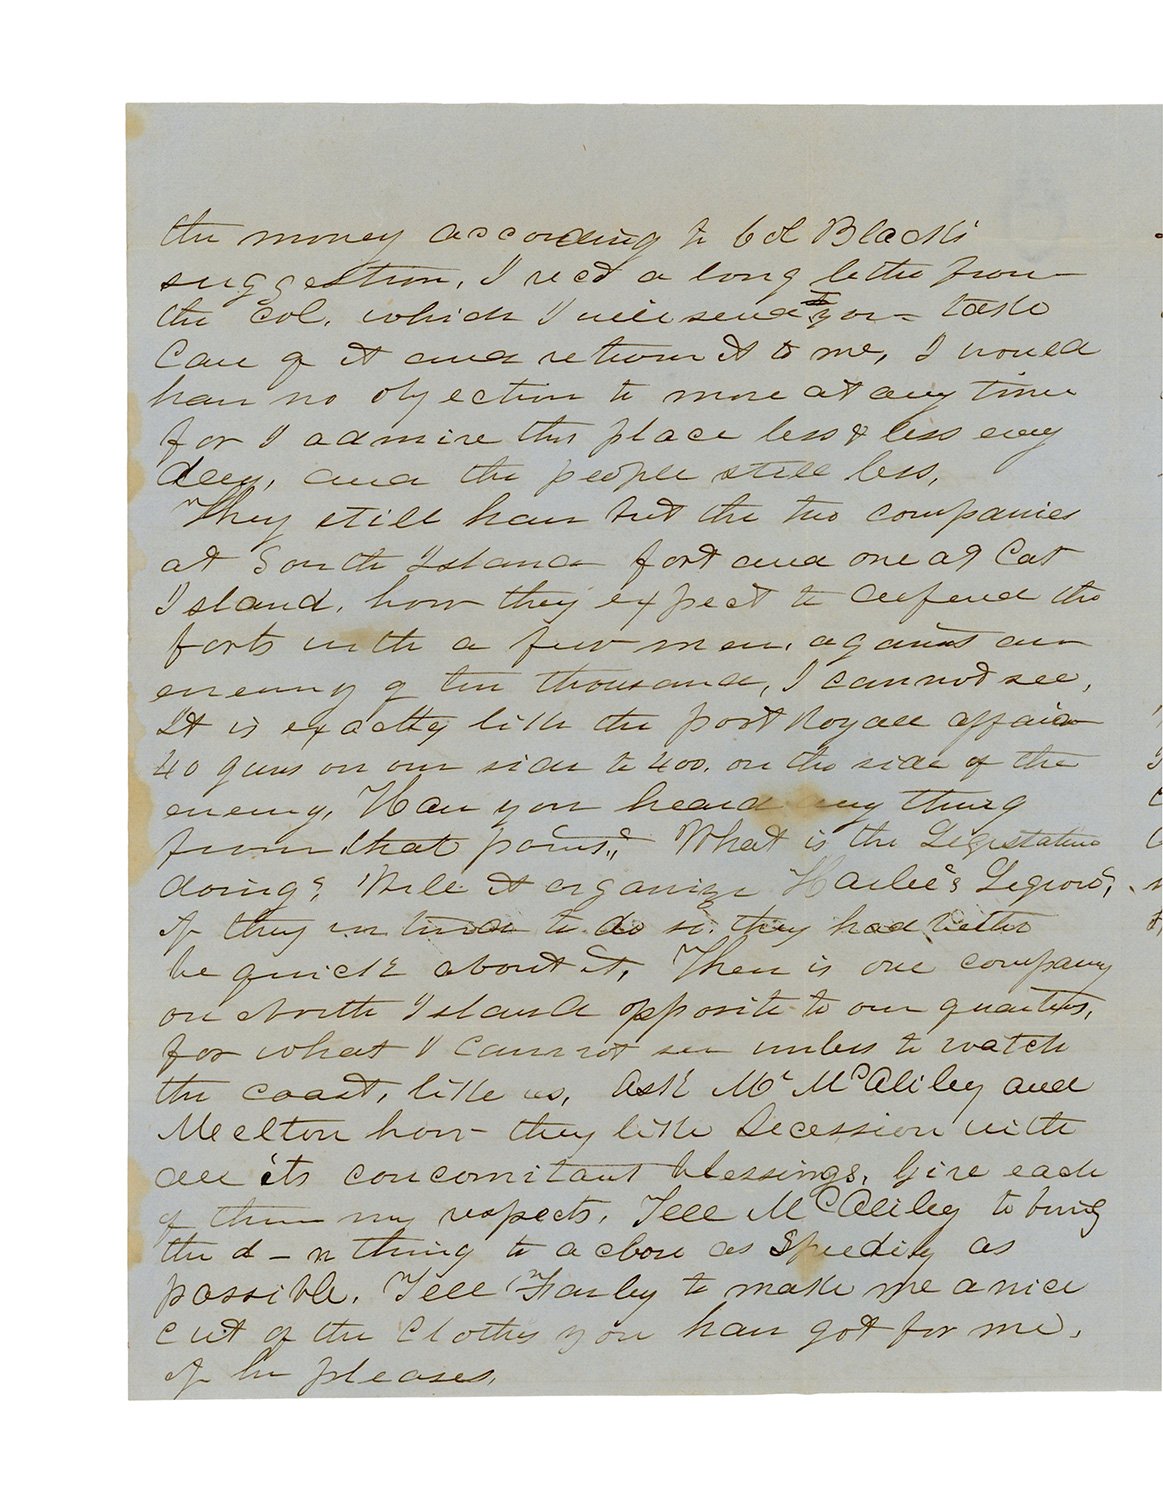 the money according to Col Black's
suggestion, I recd a long letter from
the Col. which I will send you – take
Care of it and return it to me, I would
have no objection to move at any time
for I admire this place less & less evey
day, and the people still less,
They still have but the two companies
at South Island fort and one at Cat
Island, how they expect to defend the
forts with a few men, against an
enemy of ten thousand, I cannot see,
It is exactly like the port Royall affair
40 guns on our side to 400, on the side of the
enemy, Have you heard any thing
from that point, What is the Legislature
doing? Will it organize Harlee's Legion,
if they intend to do so. they had better
be quick about it, There is one company
on North Island opposite to our quarters,
for what I cannot see unless to watch
the coast, like us, Ask Mr McAliley and
Melton how they like Secession with
all its concomitant blessings, Give each
of them my respects, Tell McAliley to bring
the d–n thing to a close as Speedily as
possible, Tell to make me a nice
cut of the Clothes you have got for me,
if he pleases,